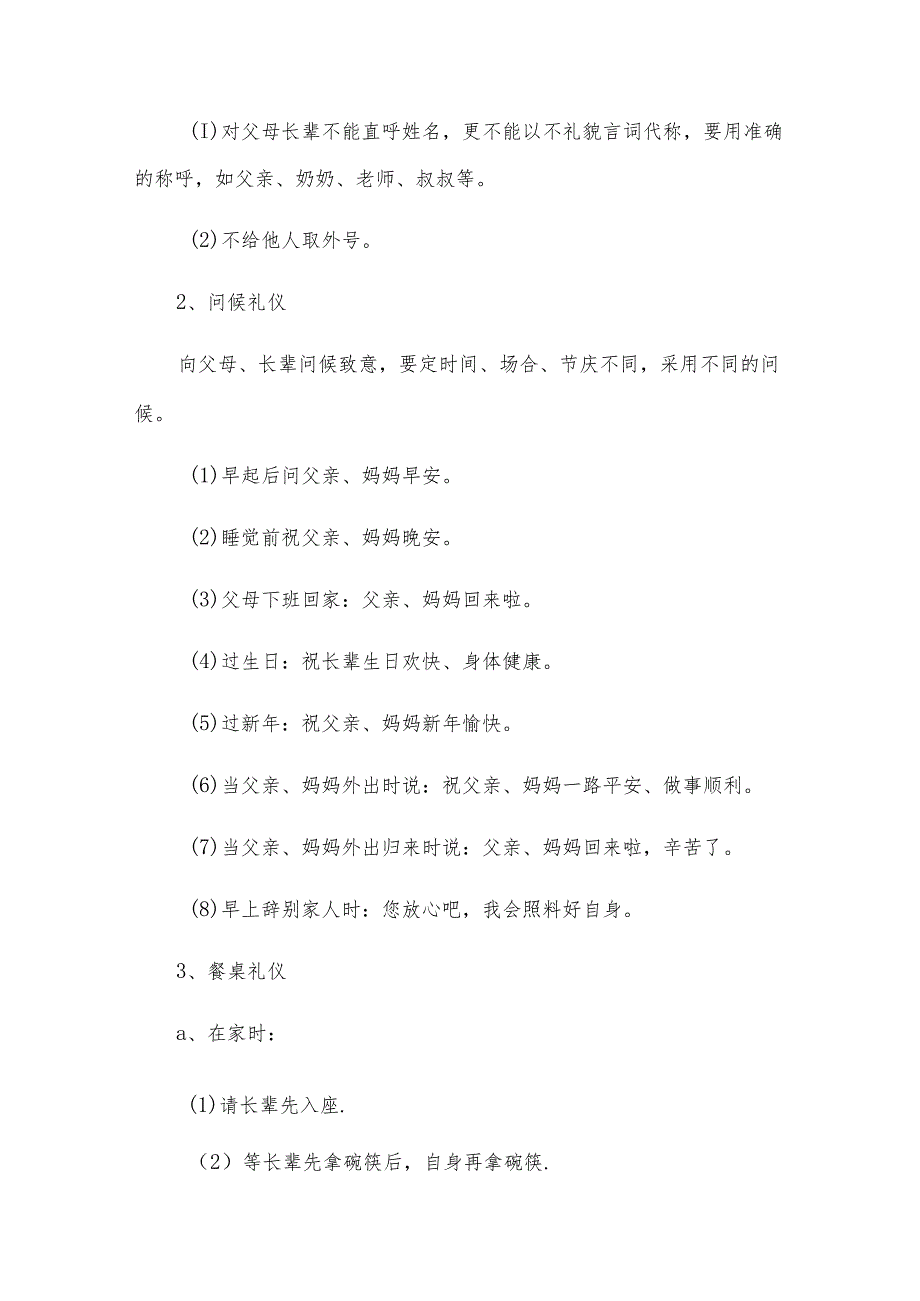 (I)对父母长辈不能直呼姓名，更不能以不礼貌言词代称，要用准确
的称呼，如父亲、奶奶、老师、叔叔等。
(2)不给他人取外号。
2、问候礼仪
向父母、长辈问候致意，要定时间、场合、节庆不同，采用不同的问
候。
(1)早起后问父亲、妈妈早安。
(2)睡觉前祝父亲、妈妈晚安。
(3)父母下班回家：父亲、妈妈回来啦。
(4)过生日：祝长辈生日欢快、身体健康。
(5)过新年：祝父亲、妈妈新年愉快。
(6)当父亲、妈妈外出时说：祝父亲、妈妈一路平安、做事顺利。
(7)当父亲、妈妈外出归来时说：父亲、妈妈回来啦，辛苦了。
(8)早上辞别家人时：您放心吧，我会照料好自身。
3、餐桌礼仪
a、在家时：
(1)请长辈先入座.
（2）等长辈先拿碗筷后，自身再拿碗筷.